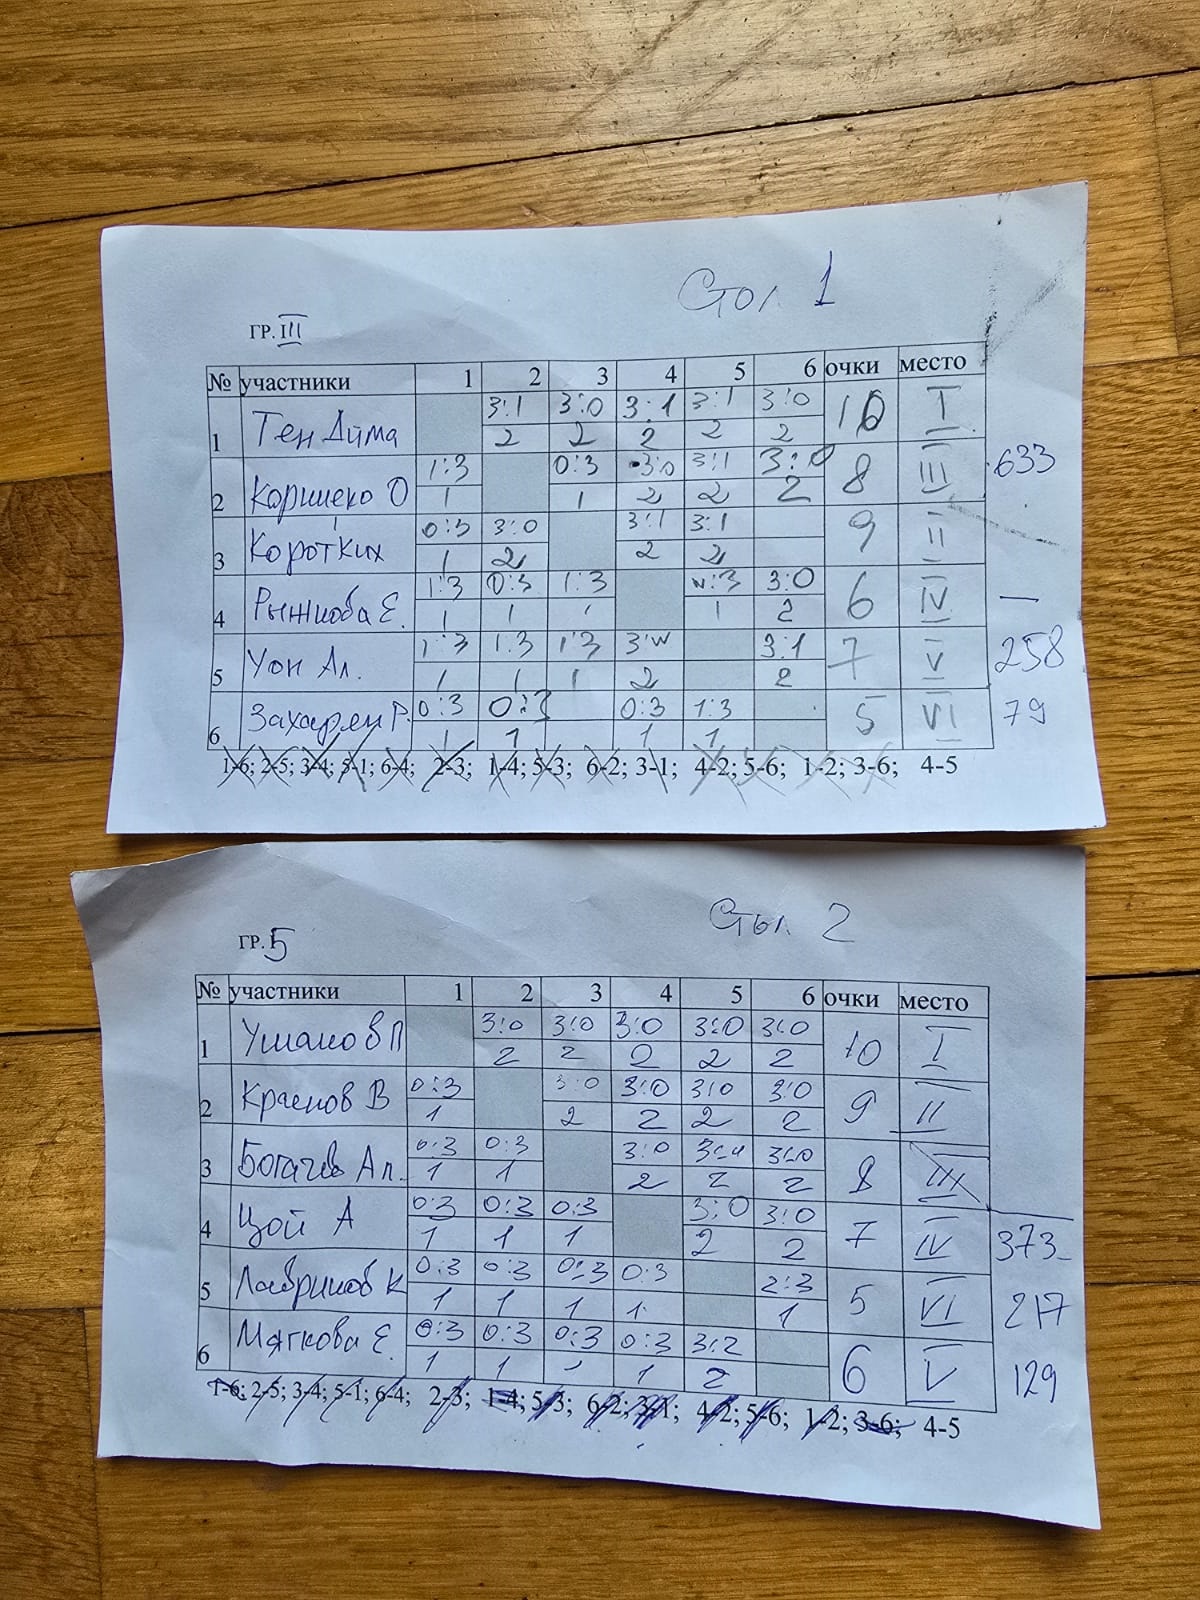 Стол 1
ГР. III
№ участники 1 2 3 4 5 6 очки место
3:1 3:0 3:1 3:1 3:0
1 Тен Дима 2 2 2 2 2 10 I
1:3 0:3 3:0 3:1 3:0
2 1 1 2 2 2 8 III 633
0:3 3:0 3:1 3:1
3 Коротких 1 2 2 2 9 II
1:3 0:3 1:3 w:3 3:0
4 Рыжкова Е. 1 1 1 1 2 6 IV —
1:3 1:3 1:3 3:w 3:1
5 Ал. 1 1 1 2 2 7 V 258
0:3 0:3 0:3 1:3
6 Р. 1 1 1 1 5 VI 79
1-6; 2-5; 3-4; 5-1; 6-4; 2-3; 1-4; 5-3; 6-2; 3-1; 4-2; 5-6; 1-2; 3-6; 4-5
Стол 2
ГР. 5
№ участники 1 2 3 4 5 6 очки место
3:0 3:0 3:0 3:0 3:0
1 Ушаков П 2 2 2 2 2 10 I
0:3 3:0 3:0 3:0 3:0
2 Краснов В 1 2 2 2 2 9 II
0:3 0:3 3:0 3:0 3:0
3 Богачев Ал. 1 1 2 2 2 8 III
0:3 0:3 0:3 3:0 3:0
4 Цой А 1 1 1 2 2 7 IV 373
0:3 0:3 0:3 0:3 2:3
5 Лавринов К 1 1 1 1 1 5 VI 217
0:3 0:3 0:3 0:3 3:2
6 Мягкова Е. 1 1 1 1 2 6 V 129
1-6; 2-5; 3-4; 5-1; 6-4; 2-3; 1-4; 5-3; 6-2; 3-1; 4-2; 5-6; 1-2; 3-6; 4-5